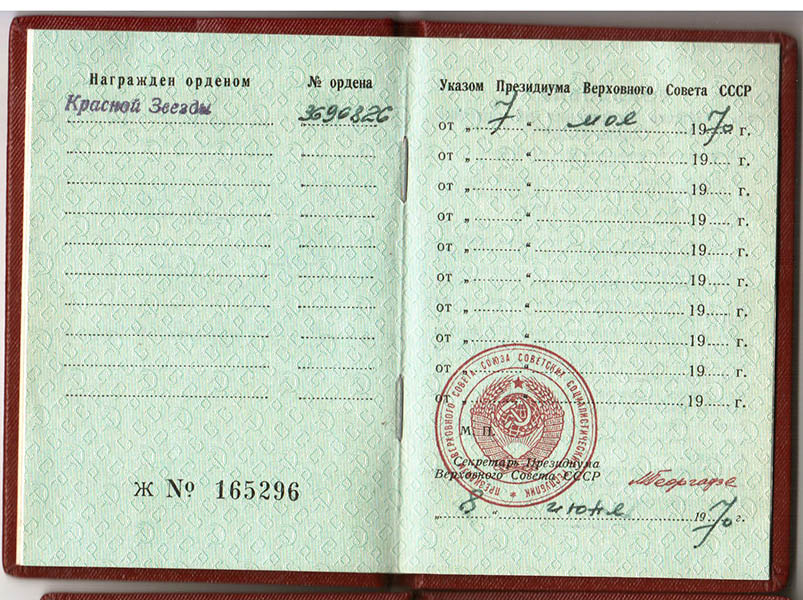 Награжден орденом № ордена
Красной Звезды 3696826
Ж № 165296
Указом Президиума Верховного Совета СССР
от „ 7 “ мая 1970 г.
от „ “ 19 г.
от „ “ 19 г.
от „ “ 19 г.
от „ “ 19 г.
от „ “ 19 г.
от „ “ 19 г.
от „ “ 19 г.
от „ “ 19 г.
от „ “ 19 г.
М. П.
Секретарь Президиума
Верховного Совета СССР
МГеоргадзе
„ 8 “ июня 1970 г.
ПРЕЗИДИУМ ВЕРХОВНОГО СОВЕТА СОЮЗА СОВЕТСКИХ СОЦИАЛИСТИЧЕСКИХ РЕСПУБЛИК